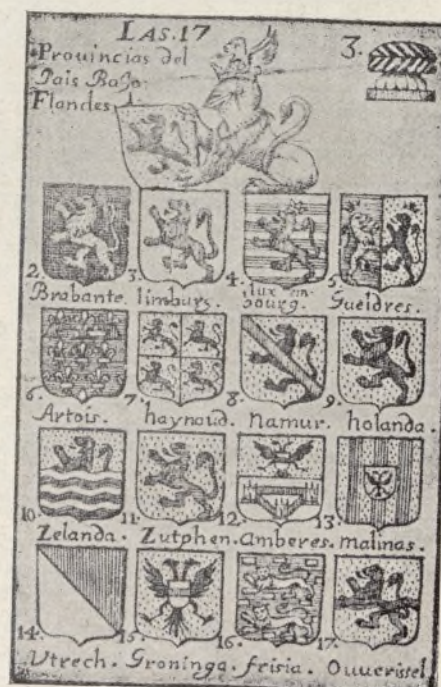 LAS.17 3.
Prouincias del
Pais Baxo
Flandes. 1
2. 3. 4. 5.
Brabante. limburg. lux em- Gueldres.
bourg.
6. 7. 8. 9.
Artois. haynoud. Namur. holanda.
10. 11. 12. 13.
Zelanda. Zutphen. Amberes. Malinas.
14. 15. 16. 17.
Vtrech. Groninga. frisia. Ouuerissel